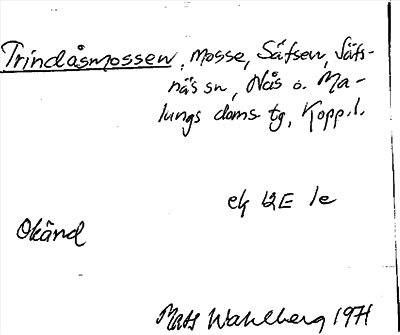 Trindåsmossen, mosse, Säfsen, Säfs-
näs sn, Nås o. Ma-
lungs doms tg, Kopp. l.
ek 12E 1e
Okänd
Mats Wahlberg 1971